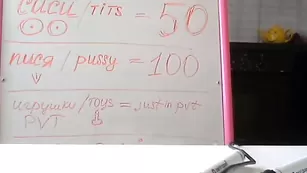 сиси / TiTS = 50
пися / pussy = 100
игрушки / TOYS = just in pvt
PVT